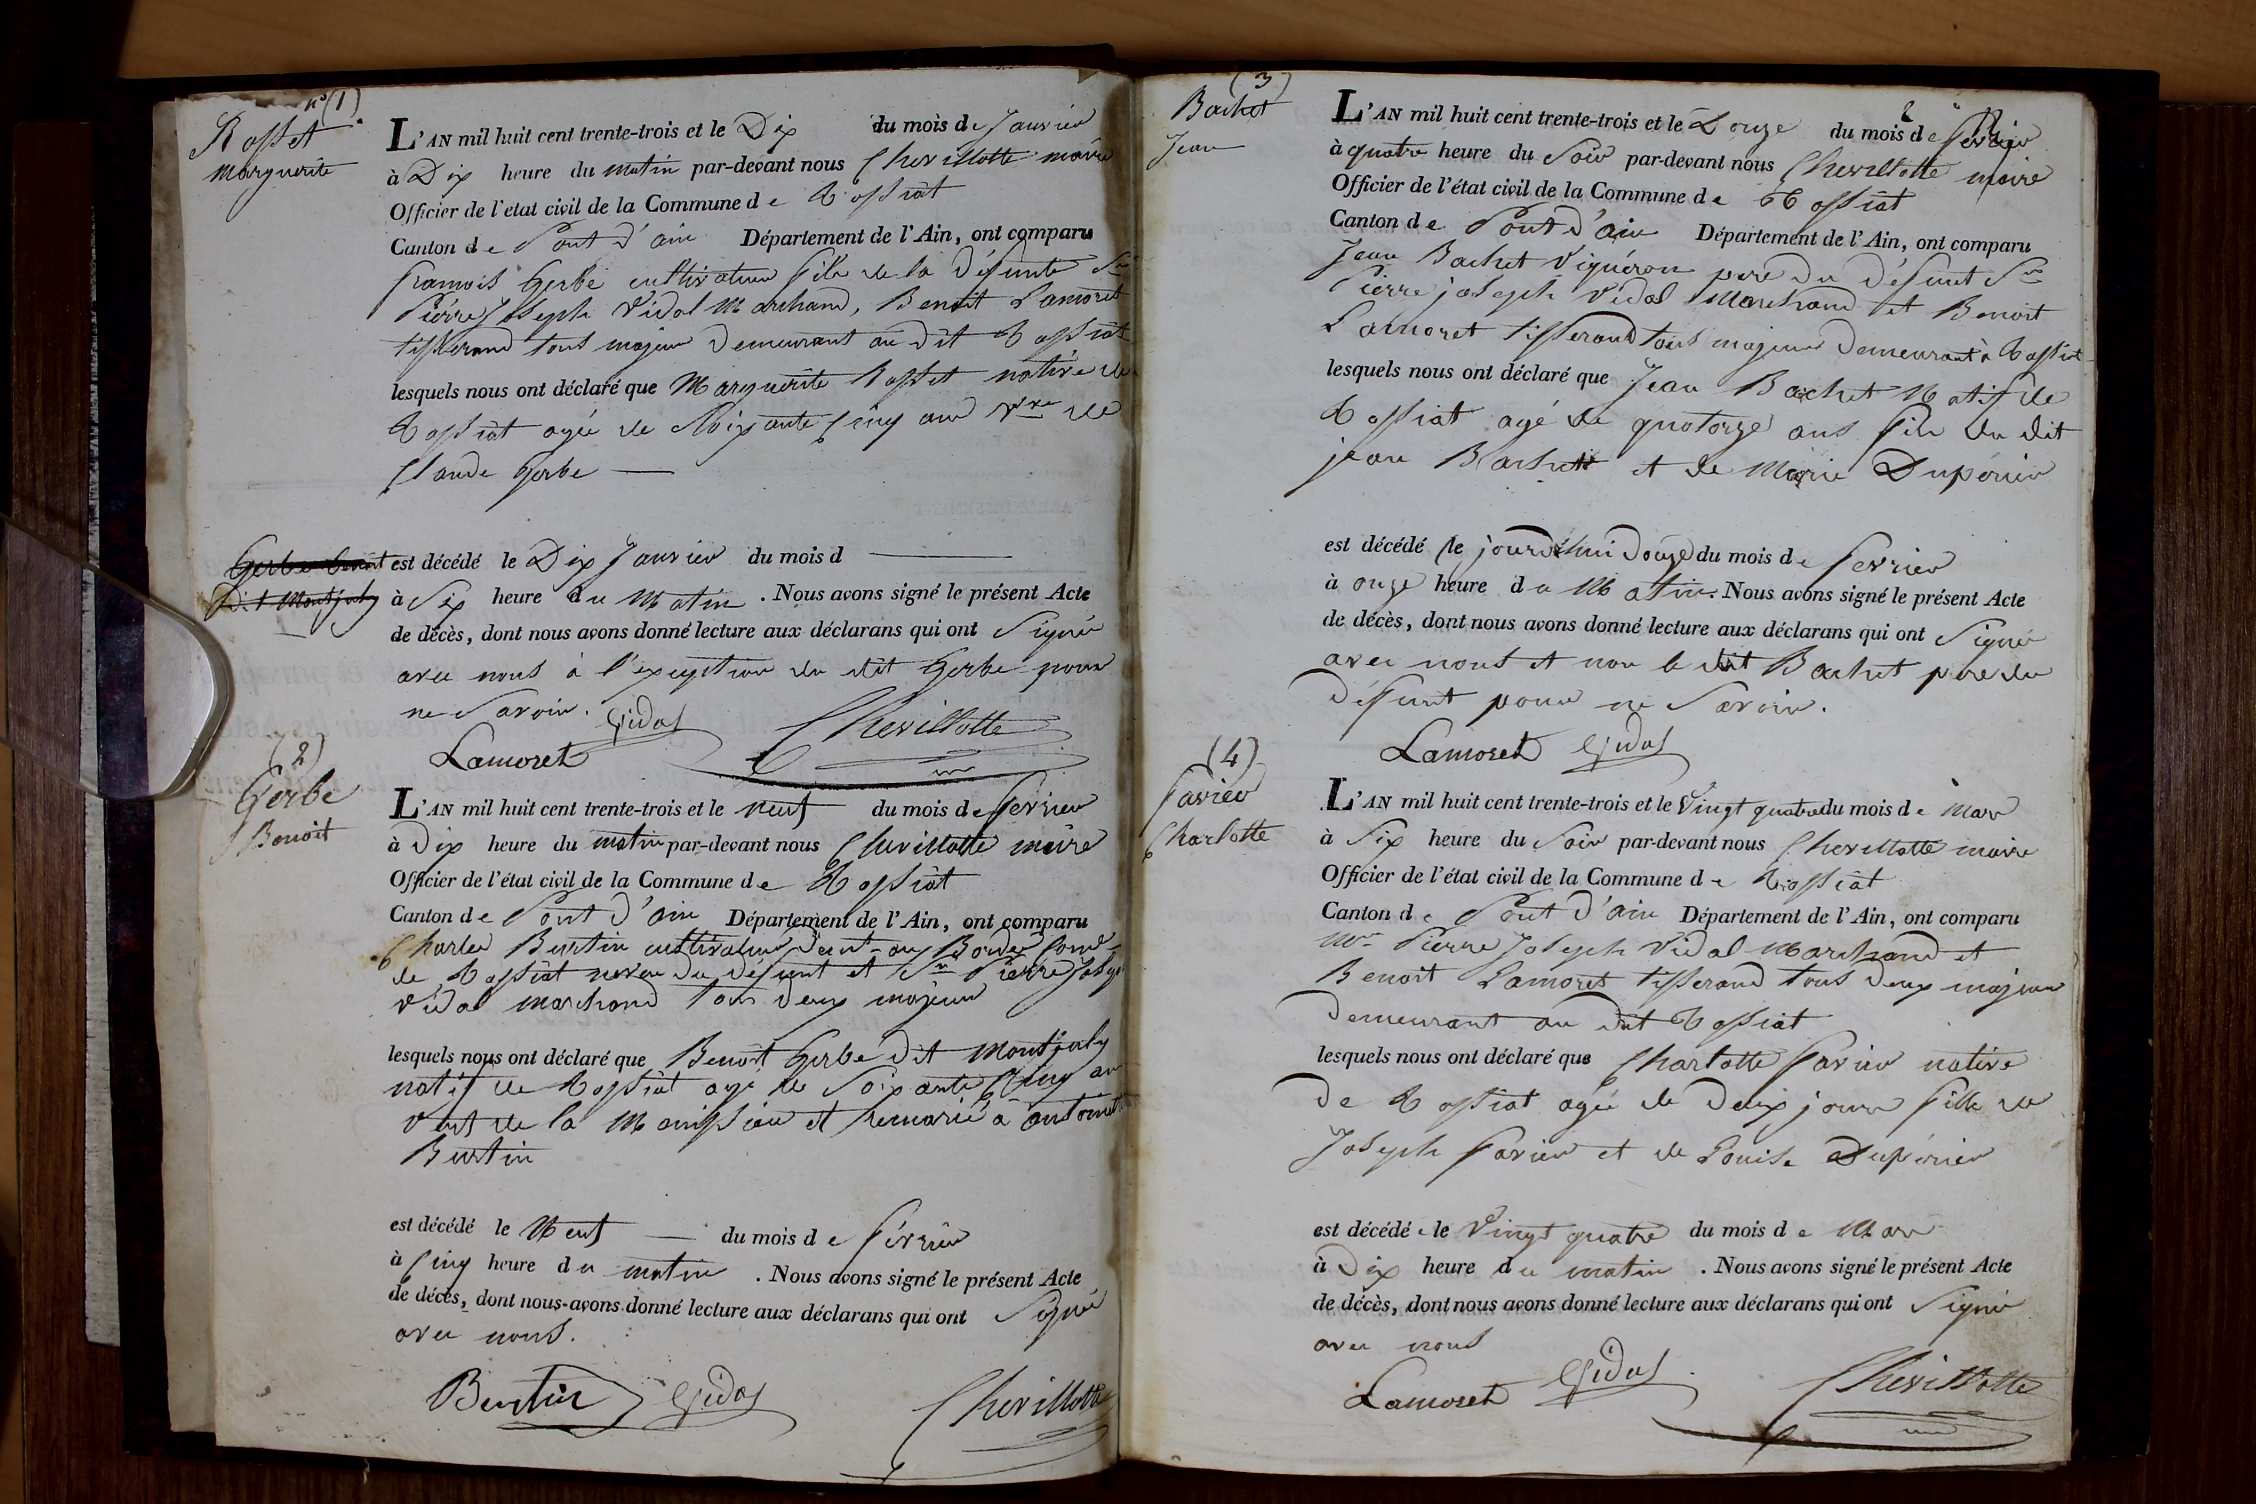 n° (1)
Rosset
Marguerite
L'AN mil huit cent trente-trois et le Dix du mois de Janvier
à Dix heure du matin par-devant nous Chevillotte maire
Officier de l'état civil de la Commune de Tossiat
Canton de Pont d'ain Département de l'Ain, ont comparu
francois Gerbe cultivateur fils de la défunte Sr
Pierre Joseph Vidal Marchand, Benoit Lamoret
tisserand tous majeur Demeurant au dit Tossiat
lesquels nous ont déclaré que Marguerite Rosset native de
Tossiat agée de Soixante cinq ans Vve de
Claude Gerbe
Gerbe Benoit
Dit Montjuly
est décédé le Dix Janvier du mois d
à Six heure du Matin. Nous avons signé le présent Acte
de décès, dont nous avons donné lecture aux déclarans qui ont Signé
avec nous à l'exception du dit Gerbe pour
ne Savoir.
Vidal
Chevillotte
Lamoret
(2)
Gerbe
Benoit
L'AN mil huit cent trente-trois et le neuf du mois de fevrier
à Dix heure du matin par-devant nous Chevillotte maire
Officier de l'état civil de la Commune de Tossiat
Canton de Pont d'ain Département de l'Ain, ont comparu
Charles Burtin cultivateur Deint aux Bordes Comne
de Tossiat neveu du défunt et Sr Pierre Joseph
Vidal marchand tous deux majeur
lesquels nous ont déclaré que Benoit Gerbe dit Montjuly
natif de Tossiat agé de Soixante Cinq an
Veuf de la et remarié à antoinette
Burtin
est décédé le Neuf du mois de février
à Cinq heure du matin. Nous avons signé le présent Acte
de décès, dont nous avons donné lecture aux déclarans qui ont Signé
avec nous.
Burtin Vidal Chevillotte
(3)
Bachet
Jean
2
L'AN mil huit cent trente-trois et le Douze du mois de fevrier
à quatre heure du Soir par-devant nous Chevillotte maire
Officier de l'état civil de la Commune de Tossiat
Canton de Pont d'ain Département de l'Ain, ont comparu
Jean Bachet Vigneron pere du défunt Sr
Pierre joseph Vidal Marchand et Benoit
Lamoret tisserand tous majeur Demeurant à Tossiat
lesquels nous ont déclaré que Jean Bachet Natif de
Tossiat agé de quatorze ans fils du dit
jean Bachet et de Marie Dupérier
est décédé le jourd'hui Douze du mois de fevrier
à onze heure du Matin. Nous avons signé le présent Acte
de décès, dont nous avons donné lecture aux déclarans qui ont Signé
avec nous et non le dit Bachet pere du
défunt pour ne Savoir.
Lamoret Vidal
(4)
favier
Charlotte
L'AN mil huit cent trente-trois et le Vingt quatre du mois de Mars
à Six heure du Soir par-devant nous Chevillotte maire
Officier de l'état civil de la Commune de Tossiat
Canton de Pont d'ain Département de l'Ain, ont comparu
Mr Pierre Joseph Vidal Marchand et
Benoit Lamoret tisserand tous deux majeur
Demeurant au dit Tossiat
lesquels nous ont déclaré que Charlotte favier native
De Tossiat agée de Deux jours fille de
Joseph favier et de Louise Dupérier
est décédé le Vingt quatre du mois de Mars
à Dix heure du matin. Nous avons signé le présent Acte
de décès, dont nous avons donné lecture aux déclarans qui ont Signé
avec nous
Lamoret Vidal Chevillotte